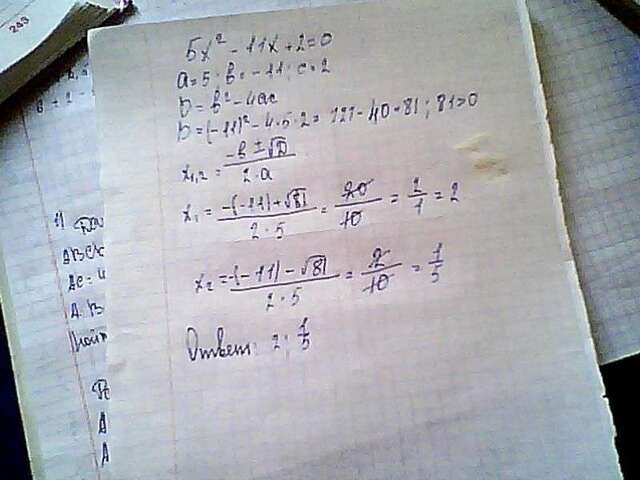 293
5x² - 11x + 2 = 0
a = 5; b = -11; c = 2
D = b² - 4ac
D = (-11)² - 4·5·2 = 121 - 40 = 81; 81>0
x₁,₂ = (-b ± √D)/(2·a)
x₁ = (-(-11)+√81)/(2·5) = 20/10 = 2/1 = 2
x₂ = (-(-11)-√81)/(2·5) = 2/10 = 1/5
Ответ: 2; 1/5